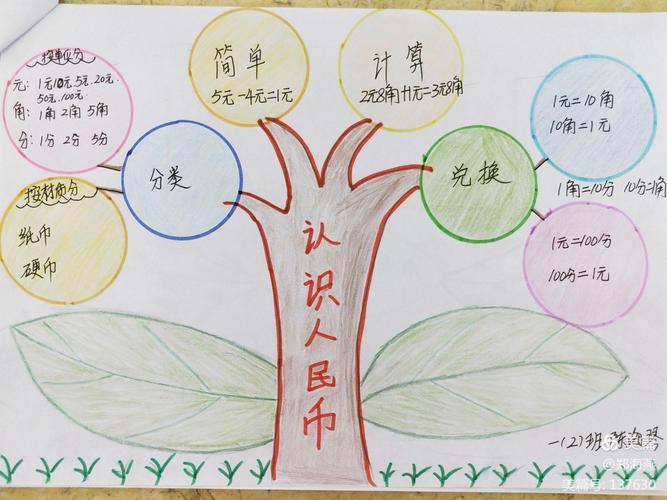 按单位分
元：1元10元.5元.20元.
50元.100元.
角：1角 2角 5角
分：1分 2分 5分
按材质分
纸币
硬币
分类
简单
5元-4元=1元
计算
2元8角+1元=3元8角
兑换
1元=10角
10角=1元
1角=10分 10分=1角
1元=100分
100分=1元
认识人民币
一(2)班
美篇
@郑海燕
美篇号: 137630